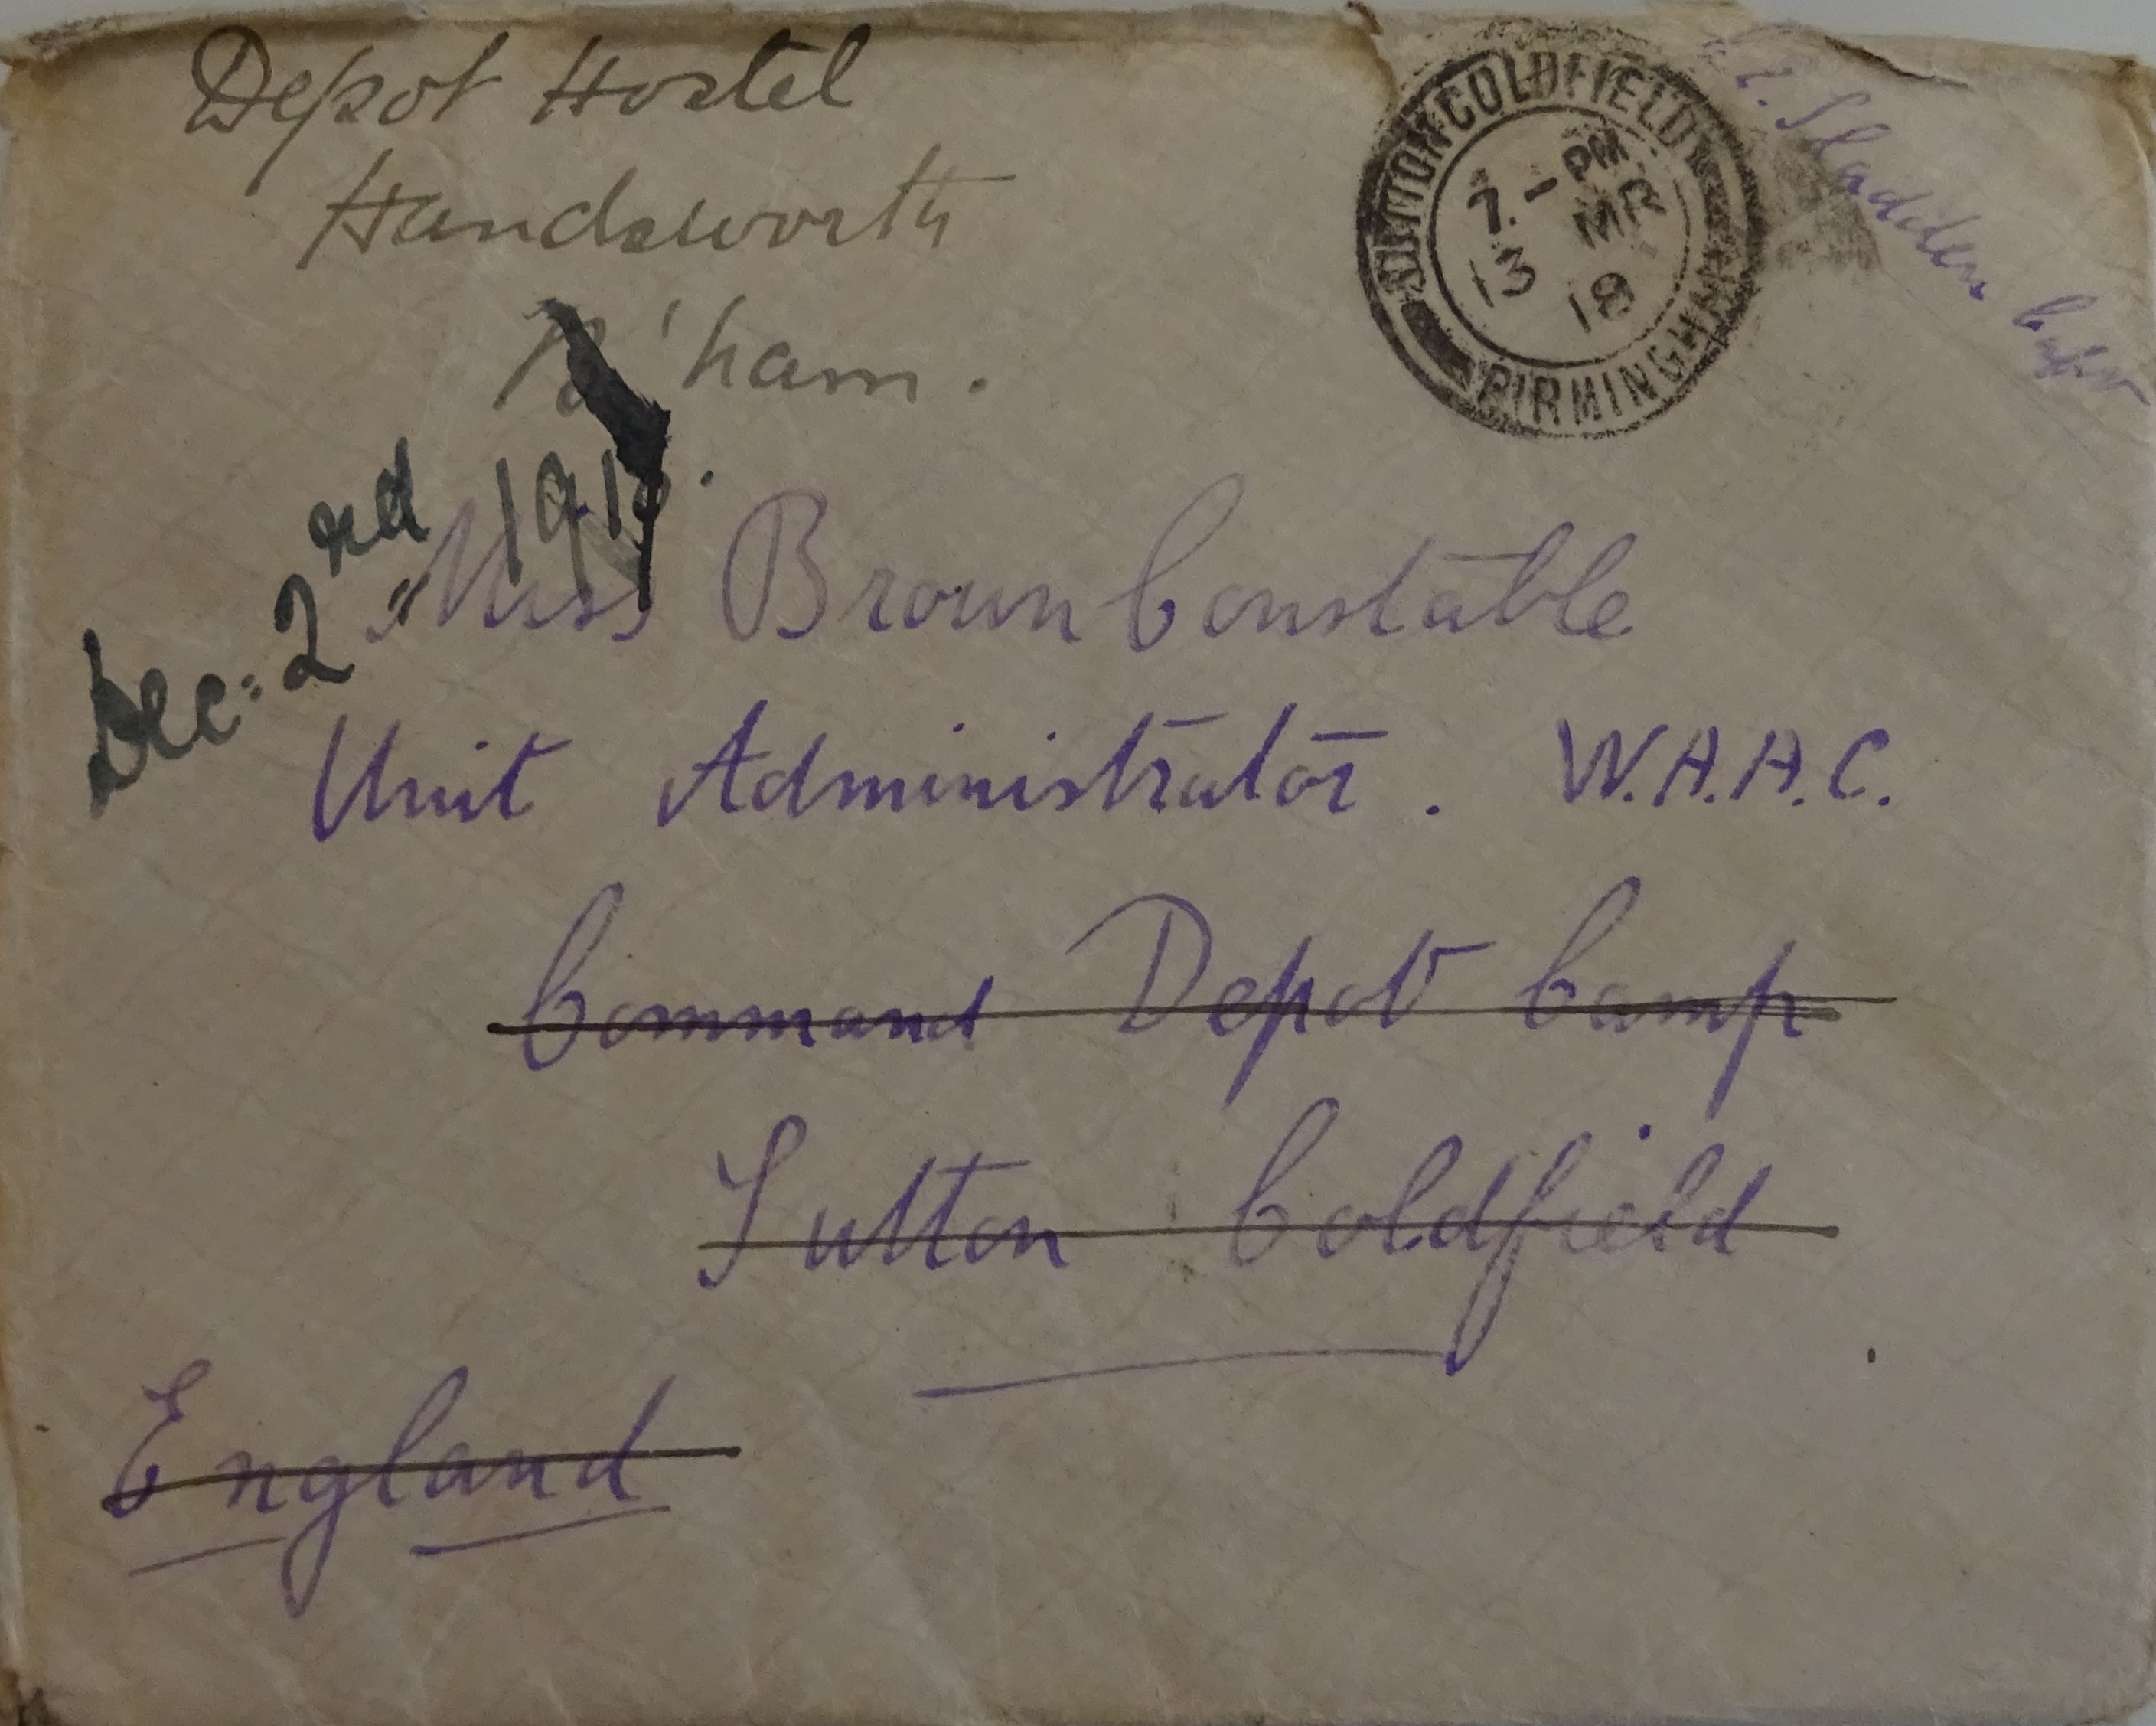 Depot Hostel
Handsworth
B'ham.
SUTTON COLDFIELD
7.- PM
13 MR
18
BIRMINGHAM
Sladden
Dec: 2nd
Miss Broun Constable
Unit Administrator. W.A.A.C.
Command Depot Camp
Sutton Coldfield
England